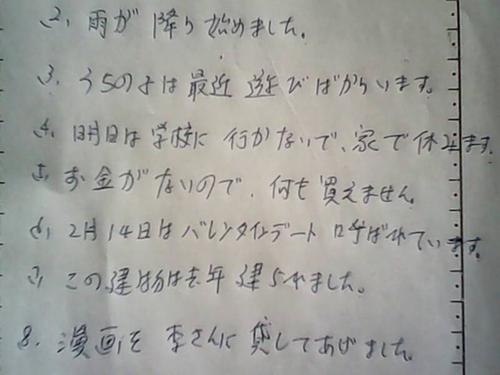 2、雨が降り始めました。
3、うちの子は最近遊びばかりいます。
4、明日は学校に行かないで、家で休みます。
5、お金がないので、何も買えません。
6、2月14日はバレンタインデート呼ばれています。
7、この建物は去年建られました。
8、漫画を李さんに貸してあげました。